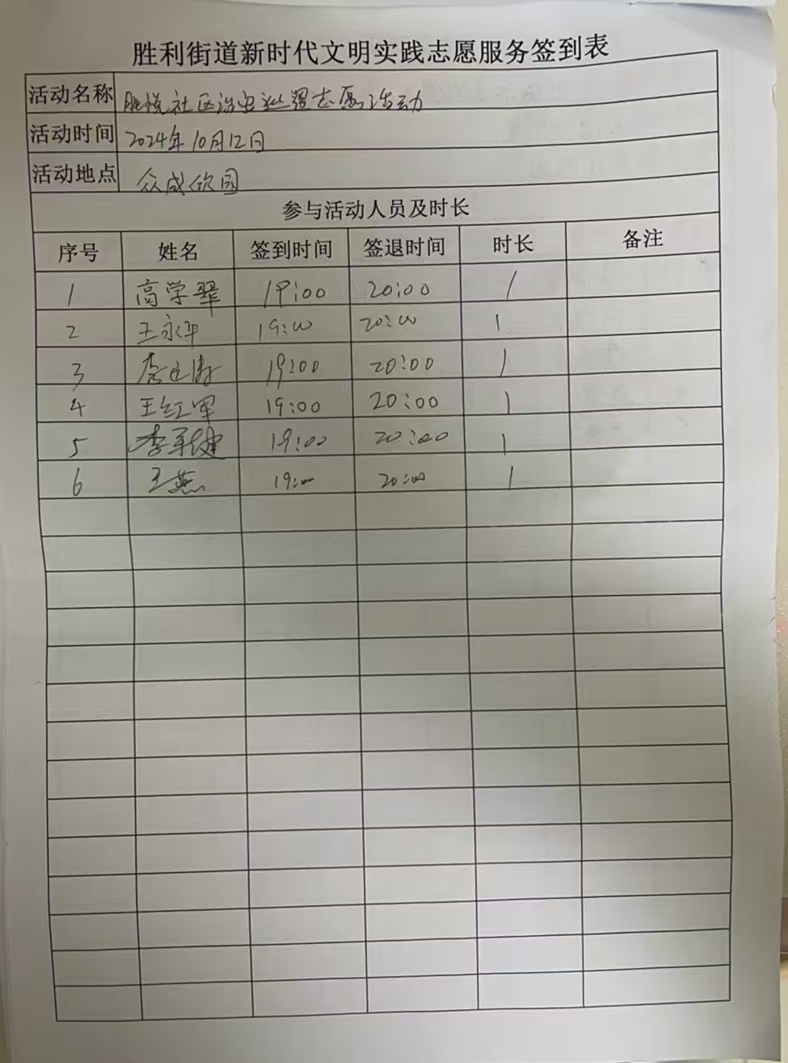 胜利街道新时代文明实践志愿服务签到表
活动名称 胜悦社区治安巡逻志愿活动
活动时间 2024年10月12日
活动地点 众成欣园
参与活动人员及时长
序号 姓名 签到时间 签退时间 时长 备注
1 高学翠 19:00 20:00 1
2 王永华 19:00 20:00 1
3 19:00 20:00 1
4 王红军 19:00 20:00 1
5 19:00 20:00 1
6 王燕 19:00 20:00 1